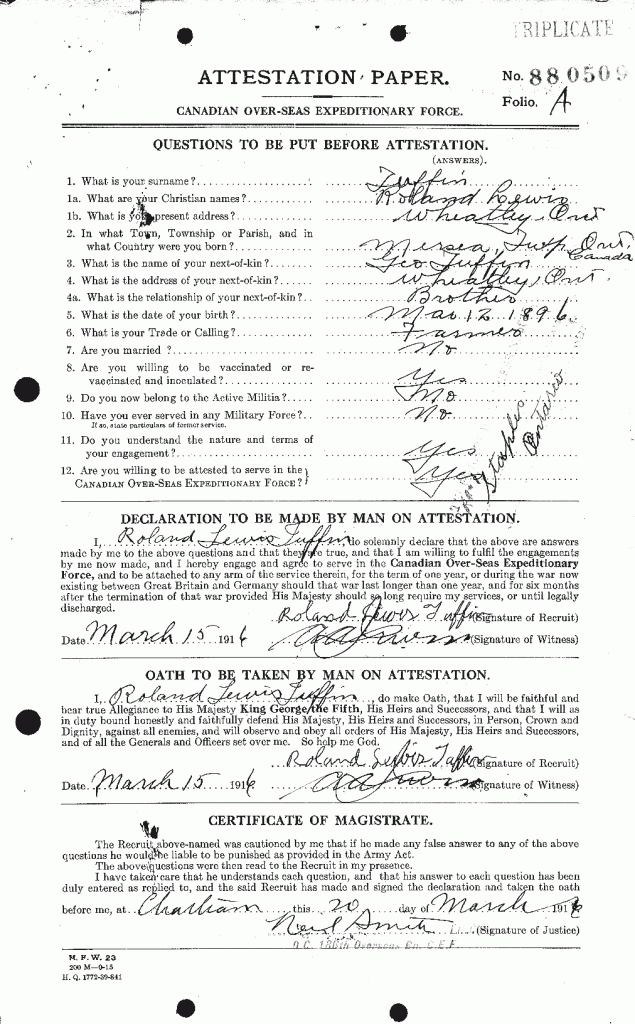 TRIPLICATE
ATTESTATION PAPER.
No. 880509
Folio. A
CANADIAN OVER-SEAS EXPEDITIONARY FORCE.
QUESTIONS TO BE PUT BEFORE ATTESTATION.
(ANSWERS).
1. What is your surname? Tuffin
1a. What are your Christian names? Roland Lewis
1b. What is your present address? Wheatley, Ont
2. In what Town, Township or Parish, and in
what Country were you born? Mersea, Twp, Ont. Canada
3. What is the name of your next-of-kin? Geo Tuffin
4. What is the address of your next-of-kin? Wheatley, Ont.
4a. What is the relationship of your next-of-kin? Brother
5. What is the date of your birth? Mar 12 1896
6. What is your Trade or Calling? Farmer
7. Are you married ? No
8. Are you willing to be vaccinated or re-
vaccinated and inoculated? Yes
9. Do you now belong to the Active Militia? No
10. Have you ever served in any Military Force? No
If so, state particulars of former service.
11. Do you understand the nature and terms of
your engagement? Yes
12. Are you willing to be attested to serve in the
CANADIAN OVER-SEAS EXPEDITIONARY FORCE? Yes
Staples
Ontario
DECLARATION TO BE MADE BY MAN ON ATTESTATION.
I, Roland Lewis Tuffin do solemnly declare that the above are answers
made by me to the above questions and that they are true, and that I am willing to fulfil the engagements
by me now made, and I hereby engage and agree to serve in the Canadian Over-Seas Expeditionary
Force, and to be attached to any arm of the service therein, for the term of one year, or during the war now
existing between Great Britain and Germany should that war last longer than one year, and for six months
after the termination of that war provided His Majesty should so long require my services, or until legally
discharged.
Roland Lewis Tuffin (Signature of Recruit)
Date March 15 1916 (Signature of Witness)
OATH TO BE TAKEN BY MAN ON ATTESTATION.
I, Roland Lewis Tuffin, do make Oath, that I will be faithful and
bear true Allegiance to His Majesty King George the Fifth, His Heirs and Successors, and that I will as
in duty bound honestly and faithfully defend His Majesty, His Heirs and Successors, in Person, Crown and
Dignity, against all enemies, and will observe and obey all orders of His Majesty, His Heirs and Successors,
and of all the Generals and Officers set over me. So help me God.
Roland Lewis Tuffin (Signature of Recruit)
Date March 15 1916 (Signature of Witness)
CERTIFICATE OF MAGISTRATE.
The Recruit above-named was cautioned by me that if he made any false answer to any of the above
questions he would be liable to be punished as provided in the Army Act.
The above questions were then read to the Recruit in my presence.
I have taken care that he understands each question, and that his answer to each question has been
duly entered as replied to, and the said Recruit has made and signed the declaration and taken the oath
before me, at Chatham this 20 day of March 1916
Neil Smith (Signature of Justice)
O.C. 186th Overseas Bn. C.E.F.
M. F. W. 23
200 M—9-15
H. Q. 1772-39-841